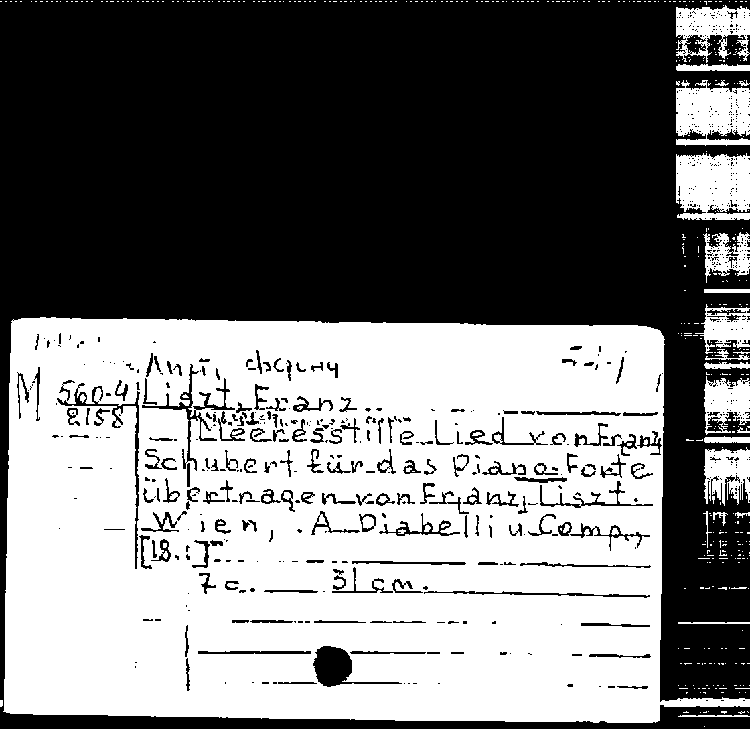 Лист, Ференц
M 560-4 Liszt, Franz
2158
Meeresstille Lied von Franz
Schubert für das Piano-Forte
übertragen von Franz Liszt.
Wien, A Diabelli u Comp.,
[18..]
7 c. 31 cm.